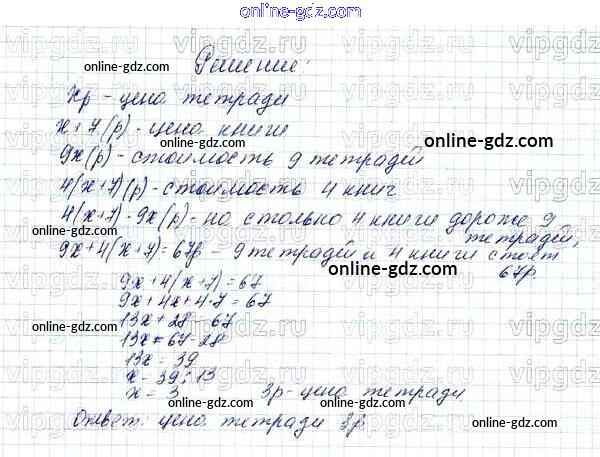 online-gdz.com
Решение:
online-gdz.com
xр - цена тетради
x+7 (р) - цена книги
online-gdz.com
9x (р) - стоимость 9 тетрадей
4(x+7) (р) - стоимость 4 книг
4(x+7) - 9x (р) - на столько 4 книги дороже 9
тетрадей,
9x+4(x+7)=67р - 9 тетрадей и 4 книги стоят
67р.
online-gdz.com
9x+4(x+7)=67
9x+4x+4·7=67
13x+28=67
online-gdz.com
13x=67-28
13x=39
x=39:13
x=3
3р-цена тетради
Ответ: цена тетради 3р
online-gdz.com
vipgdz.ru